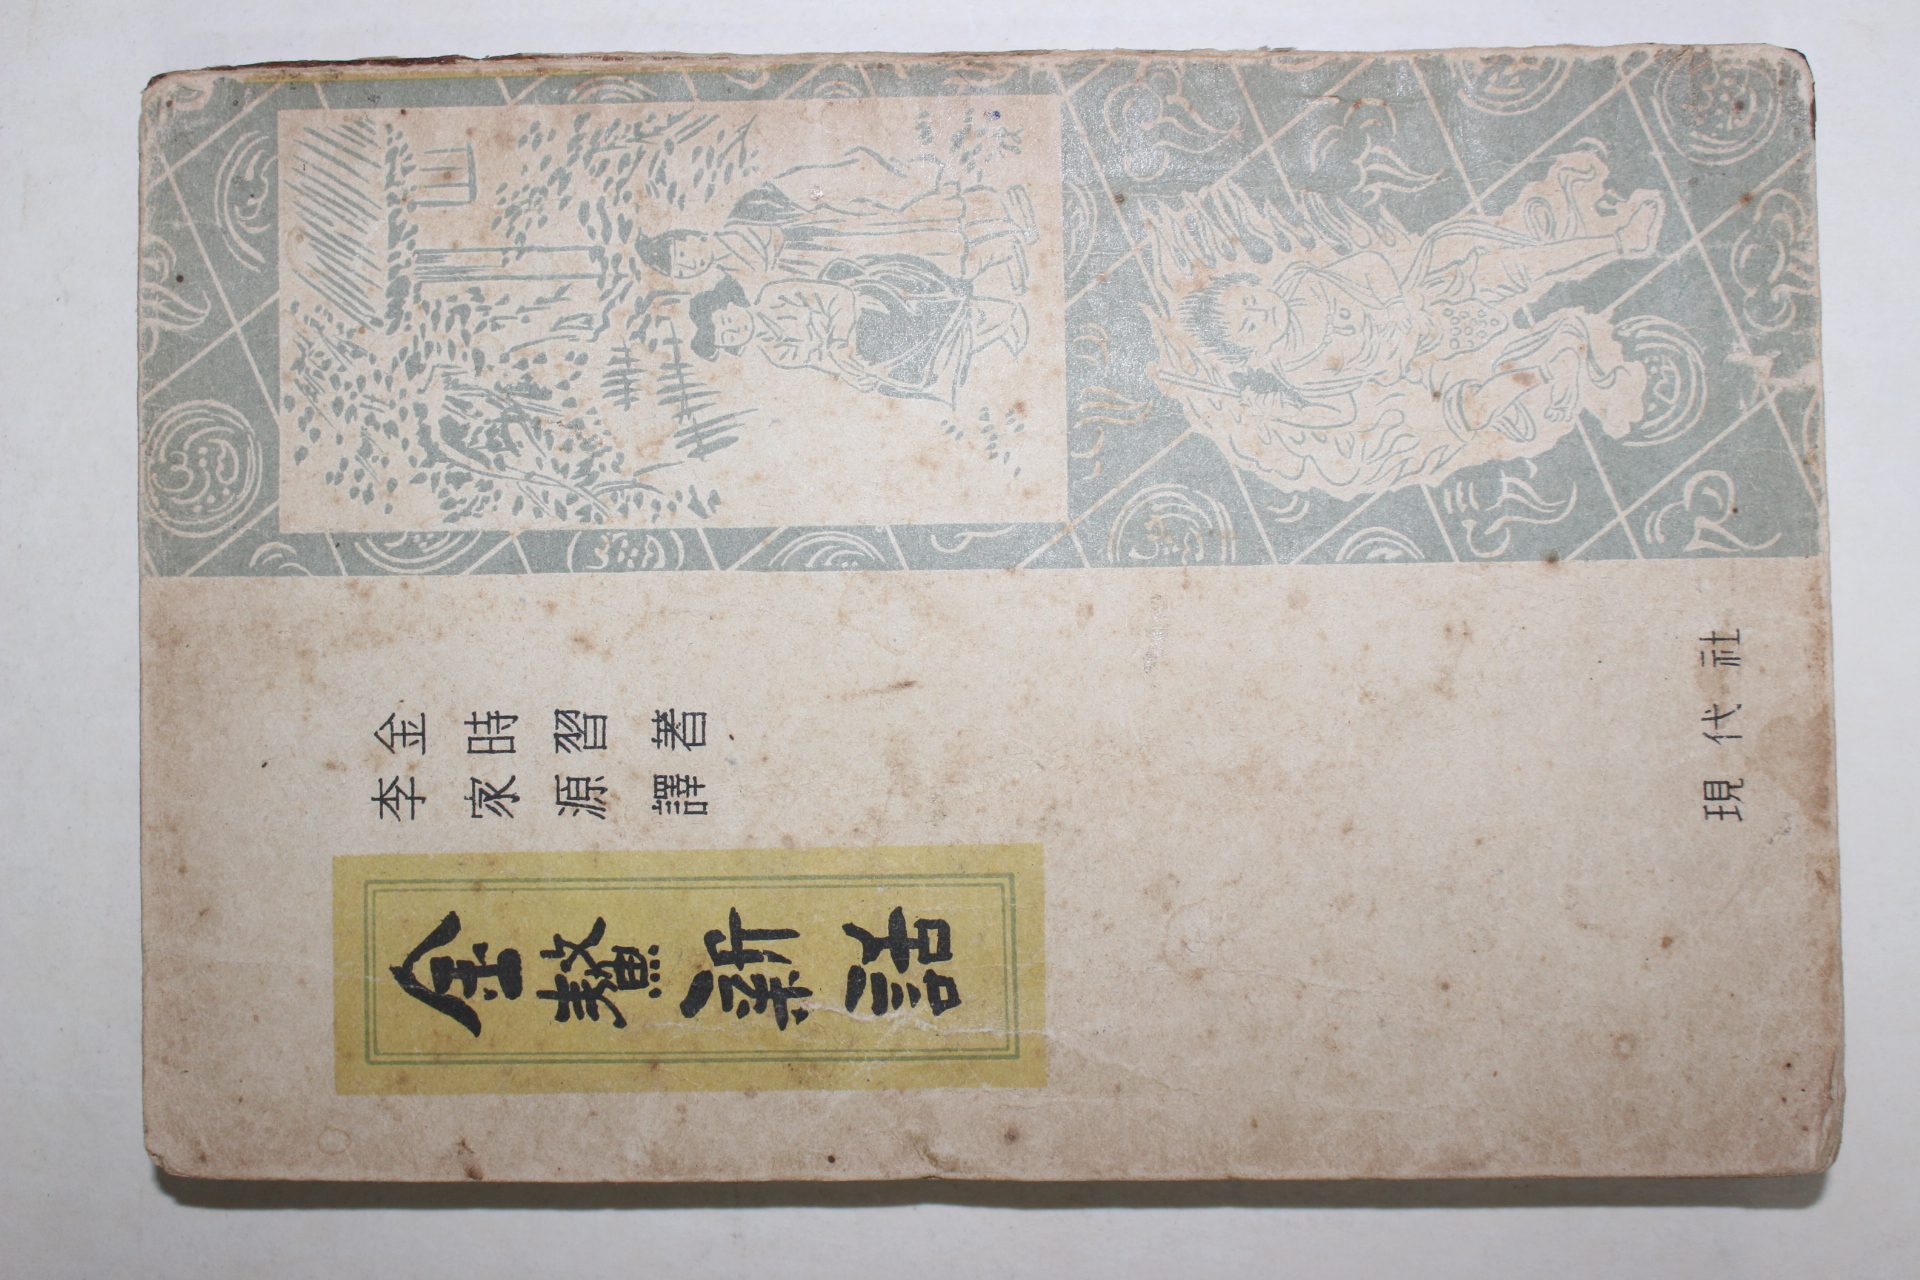 金鰲新話
金時習著
李家源譯
現代社